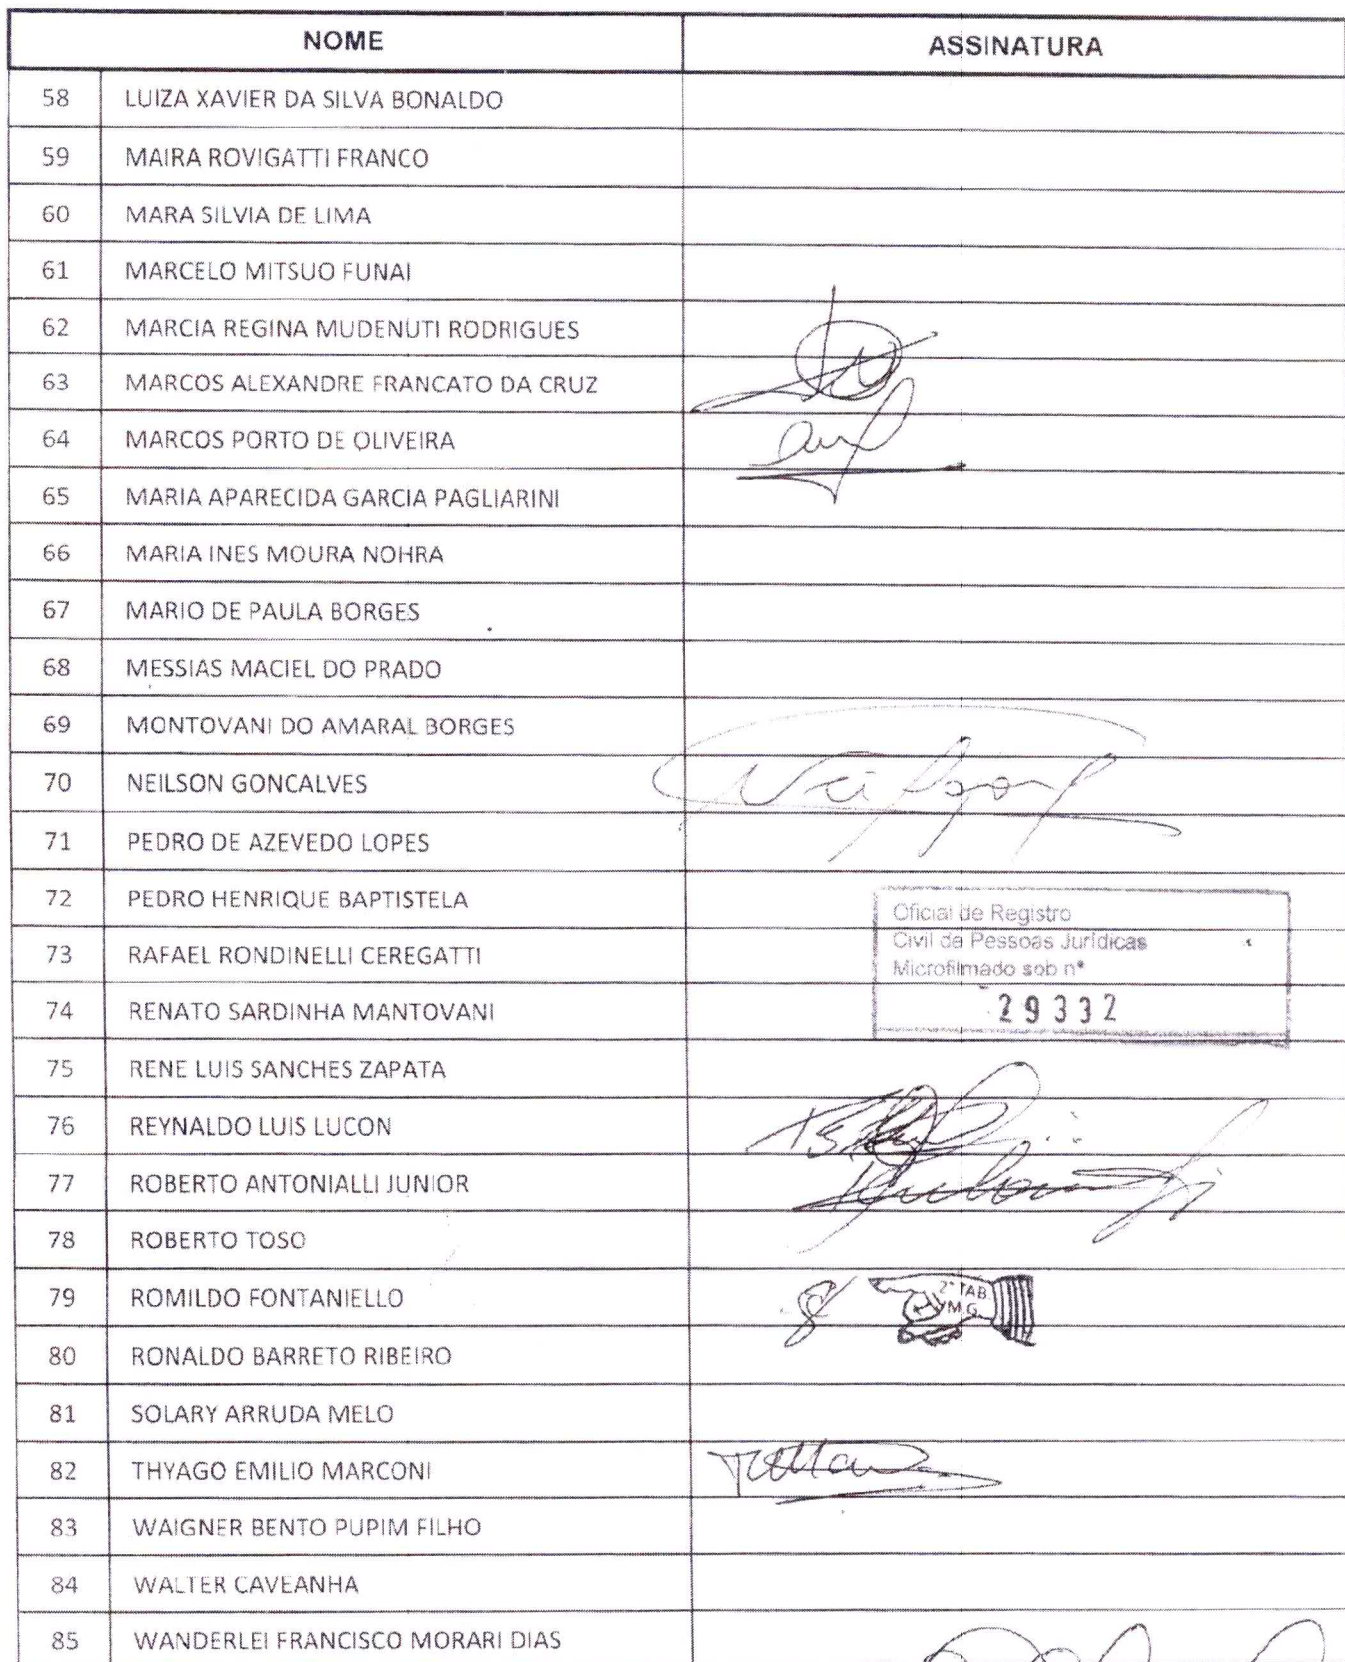 NOME ASSINATURA
58 LUIZA XAVIER DA SILVA BONALDO
59 MAIRA ROVIGATTI FRANCO
60 MARA SILVIA DE LIMA
61 MARCELO MITSUO FUNAI
62 MARCIA REGINA MUDENUTI RODRIGUES
63 MARCOS ALEXANDRE FRANCATO DA CRUZ
64 MARCOS PORTO DE OLIVEIRA
65 MARIA APARECIDA GARCIA PAGLIARINI
66 MARIA INES MOURA NOHRA
67 MARIO DE PAULA BORGES
68 MESSIAS MACIEL DO PRADO
69 MONTOVANI DO AMARAL BORGES
70 NEILSON GONCALVES
71 PEDRO DE AZEVEDO LOPES
72 PEDRO HENRIQUE BAPTISTELA
Oficial de Registro
73 RAFAEL RONDINELLI CEREGATTI
Civil de Pessoas Jurídicas
Microfilmado sob nº
74 RENATO SARDINHA MANTOVANI
29332
75 RENE LUIS SANCHES ZAPATA
76 REYNALDO LUIS LUCON
77 ROBERTO ANTONIALLI JUNIOR
78 ROBERTO TOSO
79 ROMILDO FONTANIELLO
2º TAB.
M.G.
80 RONALDO BARRETO RIBEIRO
81 SOLARY ARRUDA MELO
82 THYAGO EMILIO MARCONI
83 WAIGNER BENTO PUPIM FILHO
84 WALTER CAVEANHA
85 WANDERLEI FRANCISCO MORARI DIAS